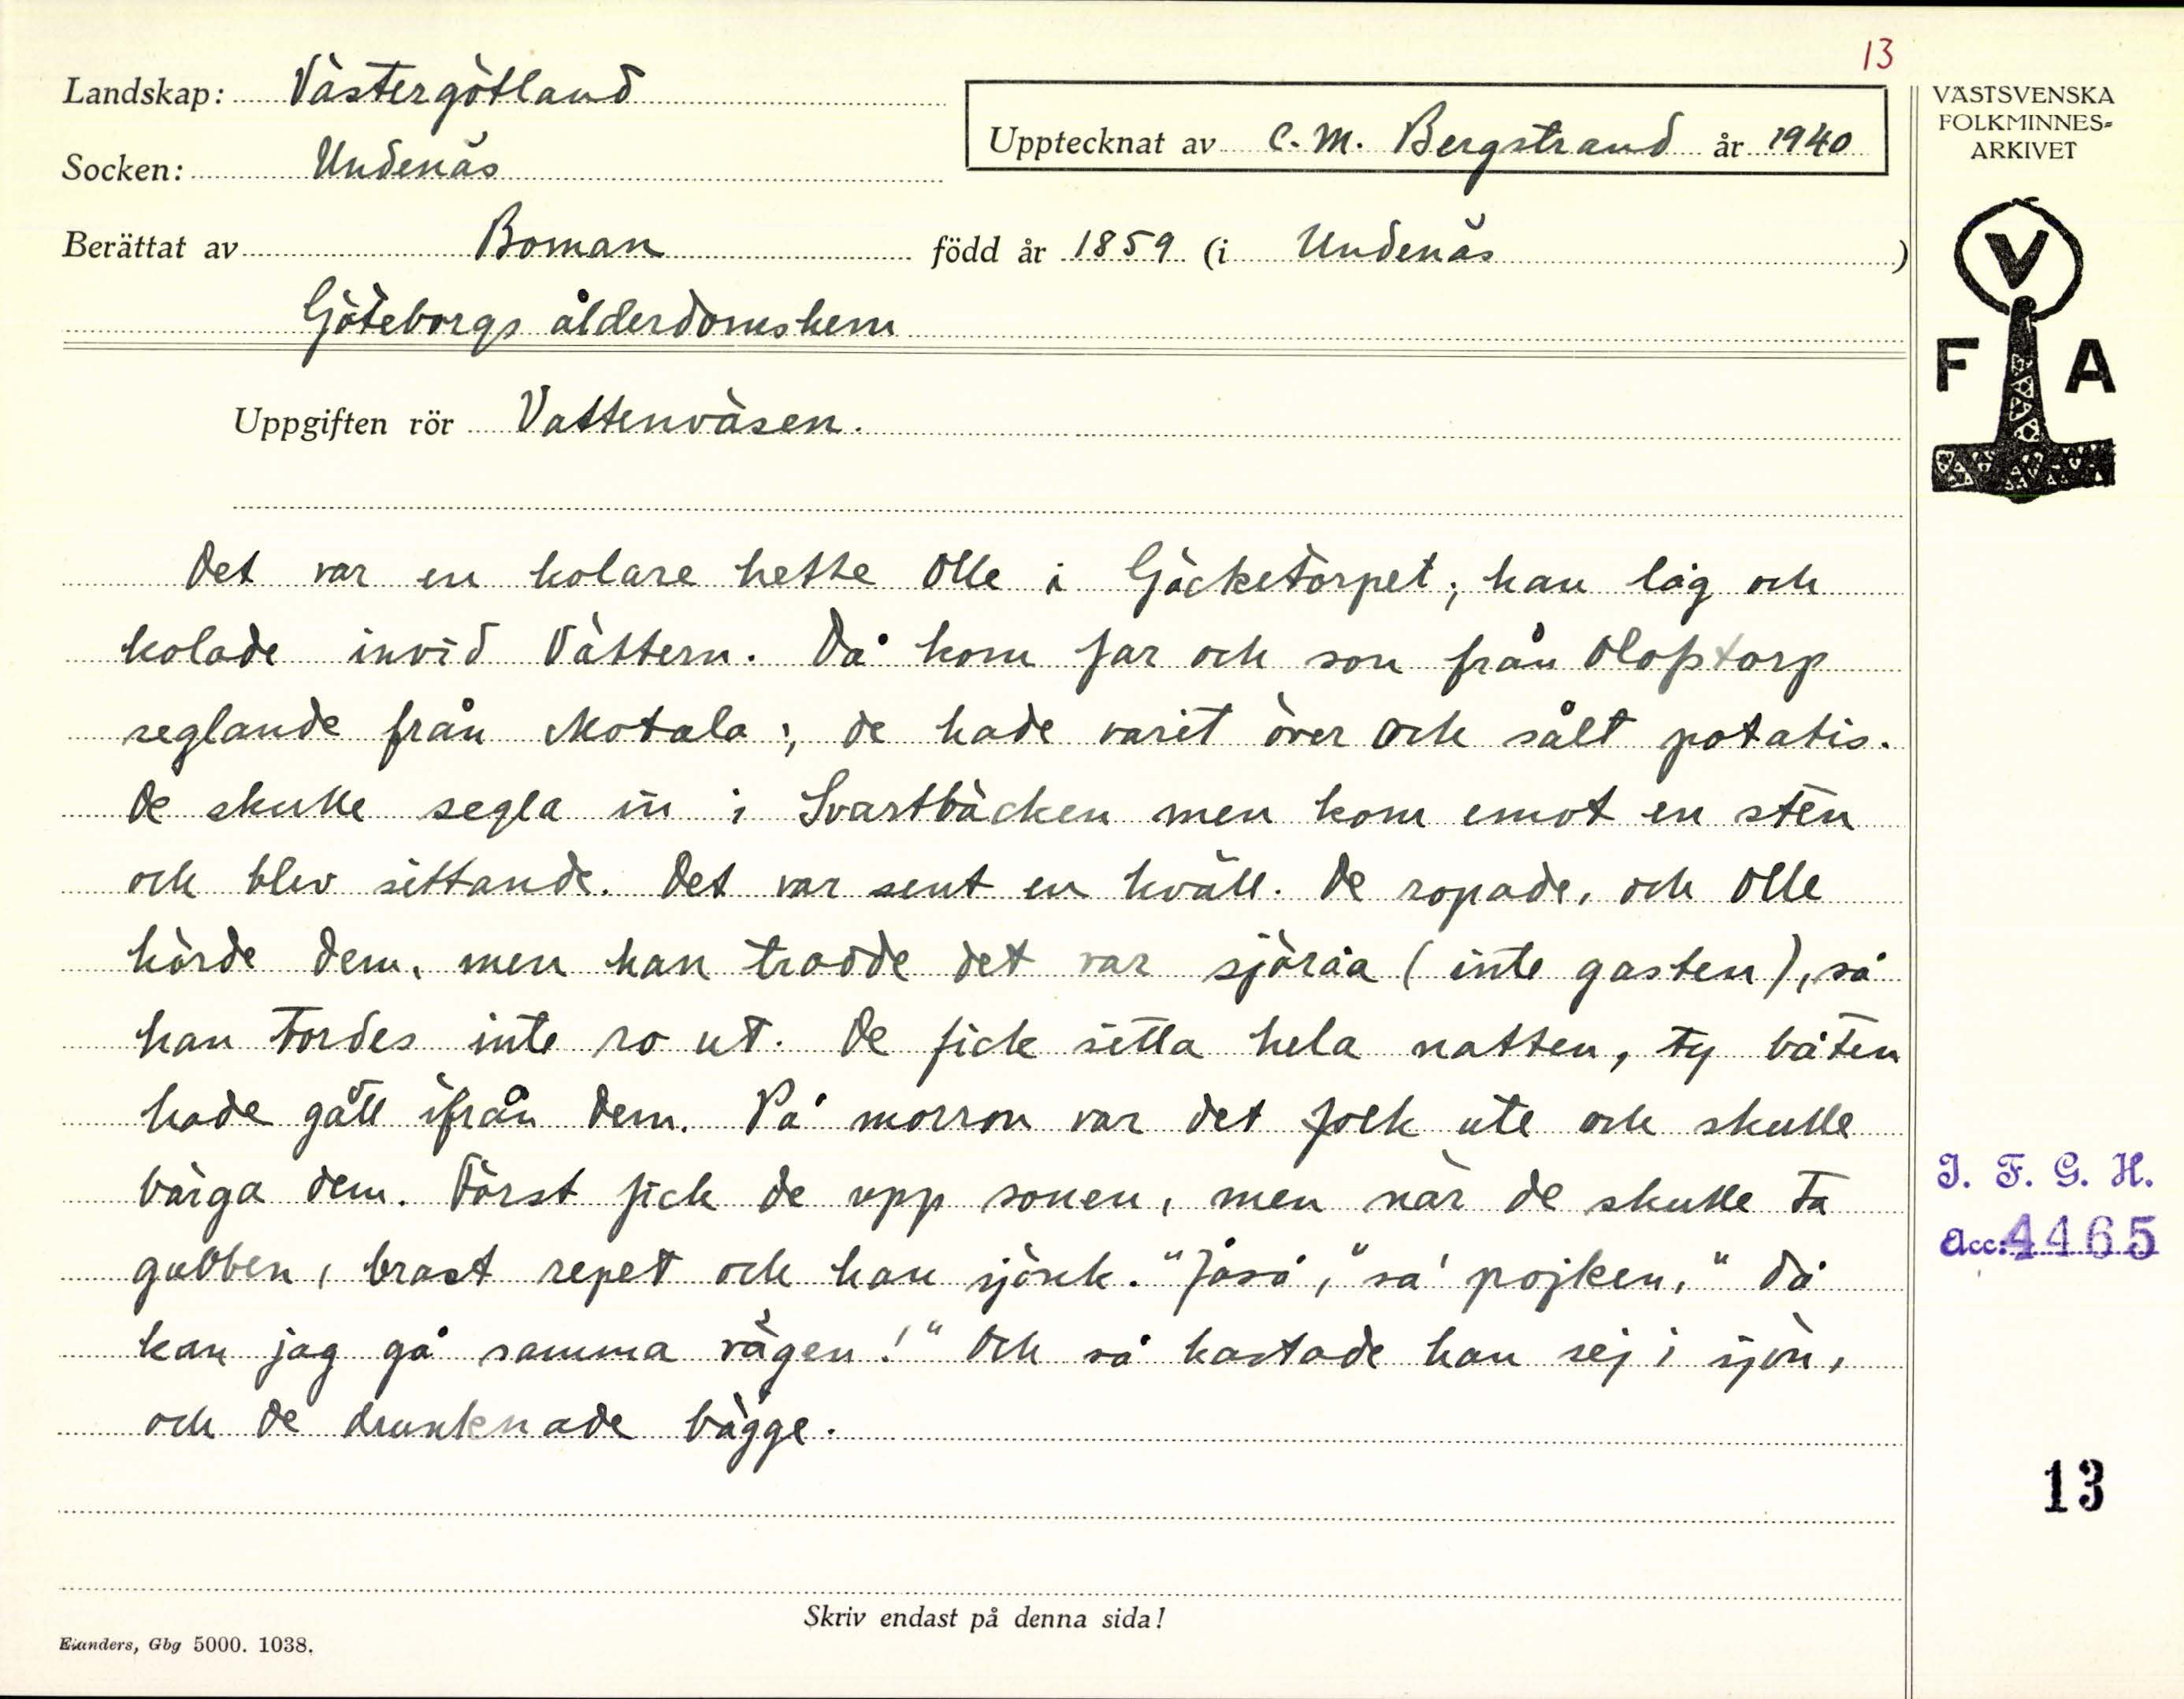 13
Landskap: Västergötland
Upptecknat av C. M. Bergstrand år 1940
Socken: Undenäs
Berättat av Boman född år 1859 (i Undenäs)
Göteborgs ålderdomshem
Uppgiften rör Vattenväsen.
VÄSTSVENSKA
FOLKMINNES-
ARKIVET
V
F A
Det var en kolare hette Olle i Gäcketorpet; han låg och
kolade invid Vättern. Då kom far och son från Olofstorp
seglande från Motala; de hade varit över och sålt potatis.
De skulle segla in i Svartbäcken men kom emot en sten
och blev sittande. Det var sent en kväll. De ropade, och Olle
hörde dem, men han trodde det var sjöråa (inte gasten), så
han tordes inte ro ut. De fick sitta hela natten, ty båten
hade gått ifrån dem. På morron var det folk ute och skulle
bärga dem. Först fick de upp sonen, men när de skulle ta
gubben, brast repet och han sjönk. "Jåså," sa' pojken, "då
kan jag gå samma vägen!" Och så kastade han sej i sjön,
och de drunknade bägge.
I. F. G. H.
Acc: 4465
13
Skriv endast på denna sida!
Elanders, Gbg 5000. 1038.